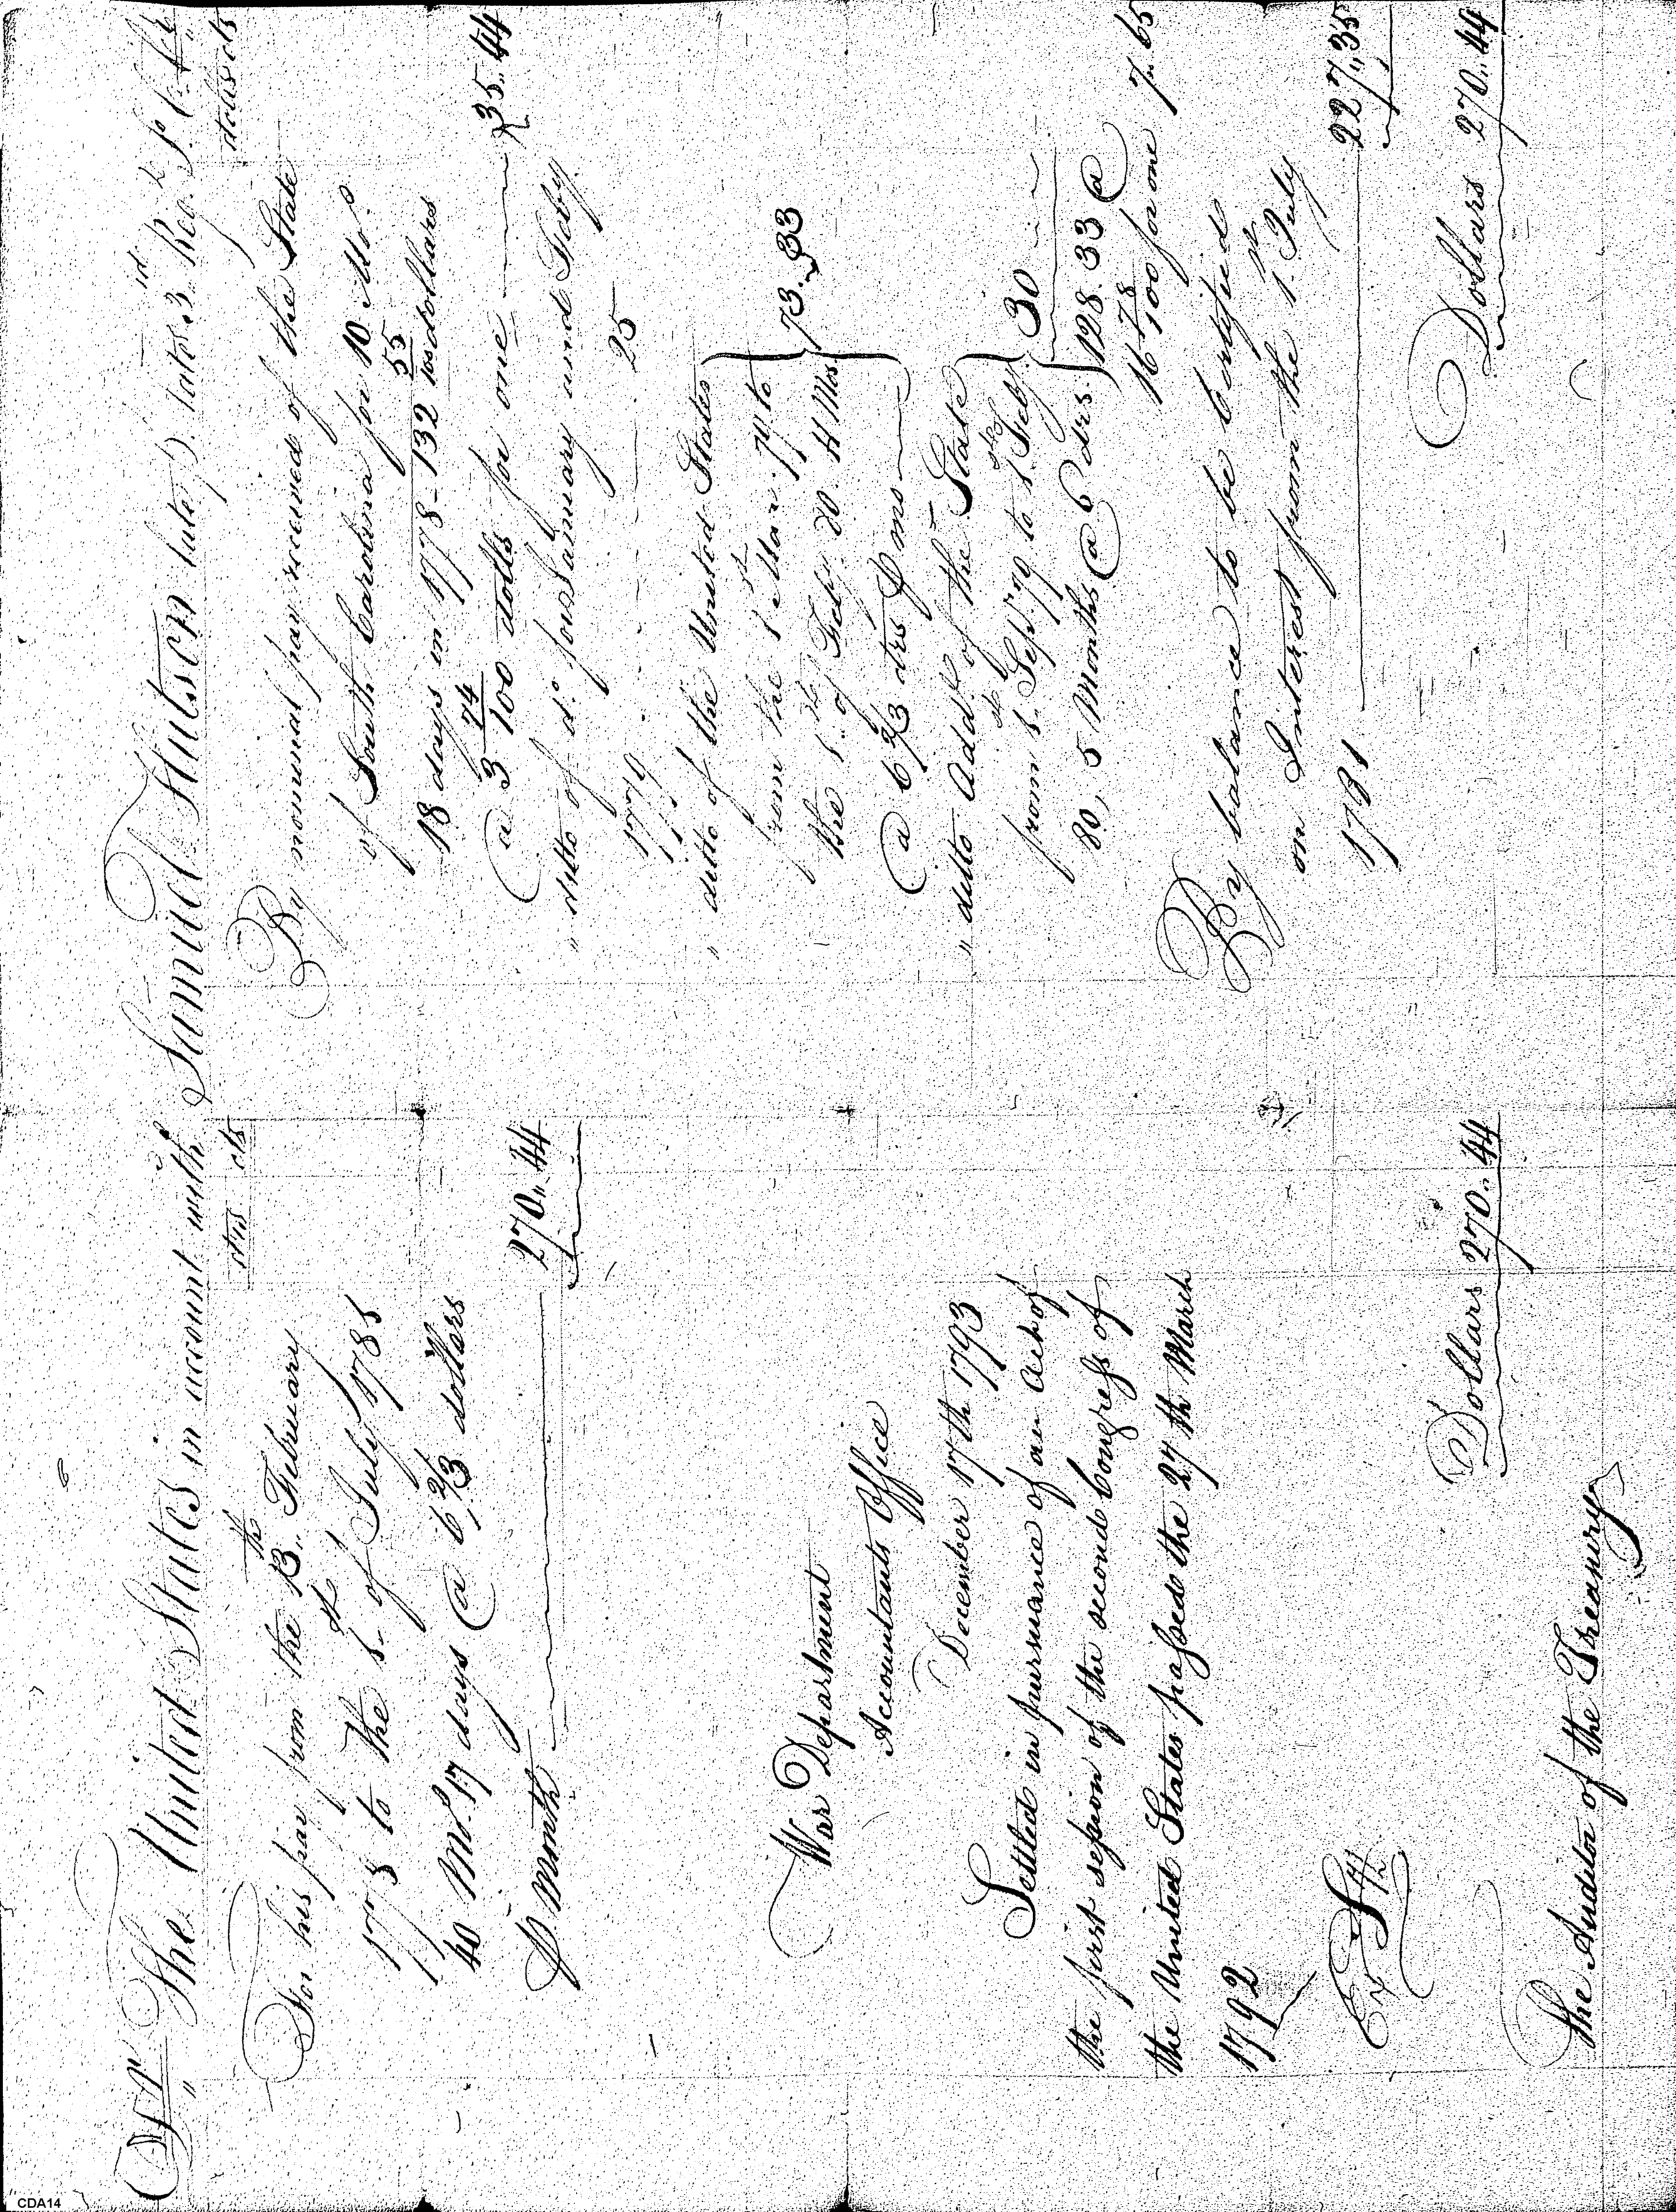 Dr The United States in account with Samuel Hutson late P. late 3rd Reg. S. C. Cr
drs cts
For his pay from the 13th February
1778 to the 1st of July 1781
40 Mos. 17 days @ 6 2/3 dollars
P Month 270.. 44
War Department
Accountants Office
December 17th 1793
Settled in pursuance of an Act of
the first session of the second Congress of
the United States passed the 27th March
1792
Ex
Dollars 270.. 44
The Auditor of the Treasury
dolls cts
By nominal pay received of the State
of South Carolina for 10 Mos.
18 days in 1778 - 132 55/100 dollars
@ 3 74/100 dolls for one 35.. 44
" ditto of do for January and Feby.
1779 25
" ditto of the United States
from the 1st Mar. 79 to
the 1st of Feby. 80. 11 Mos.
@ 6 2/3 drs P mo 73.. 33
" ditto Addl. of the State
from 1st Sept. 79 to 1st Feby.
80, 5 Months @ 6 drs. 30
128. 33 @
16 78/100 for one 7.. 65
By balance to be certified
on Interest from the 1st July
1781 227.. 35
Dollars 270.. 44
CDA14